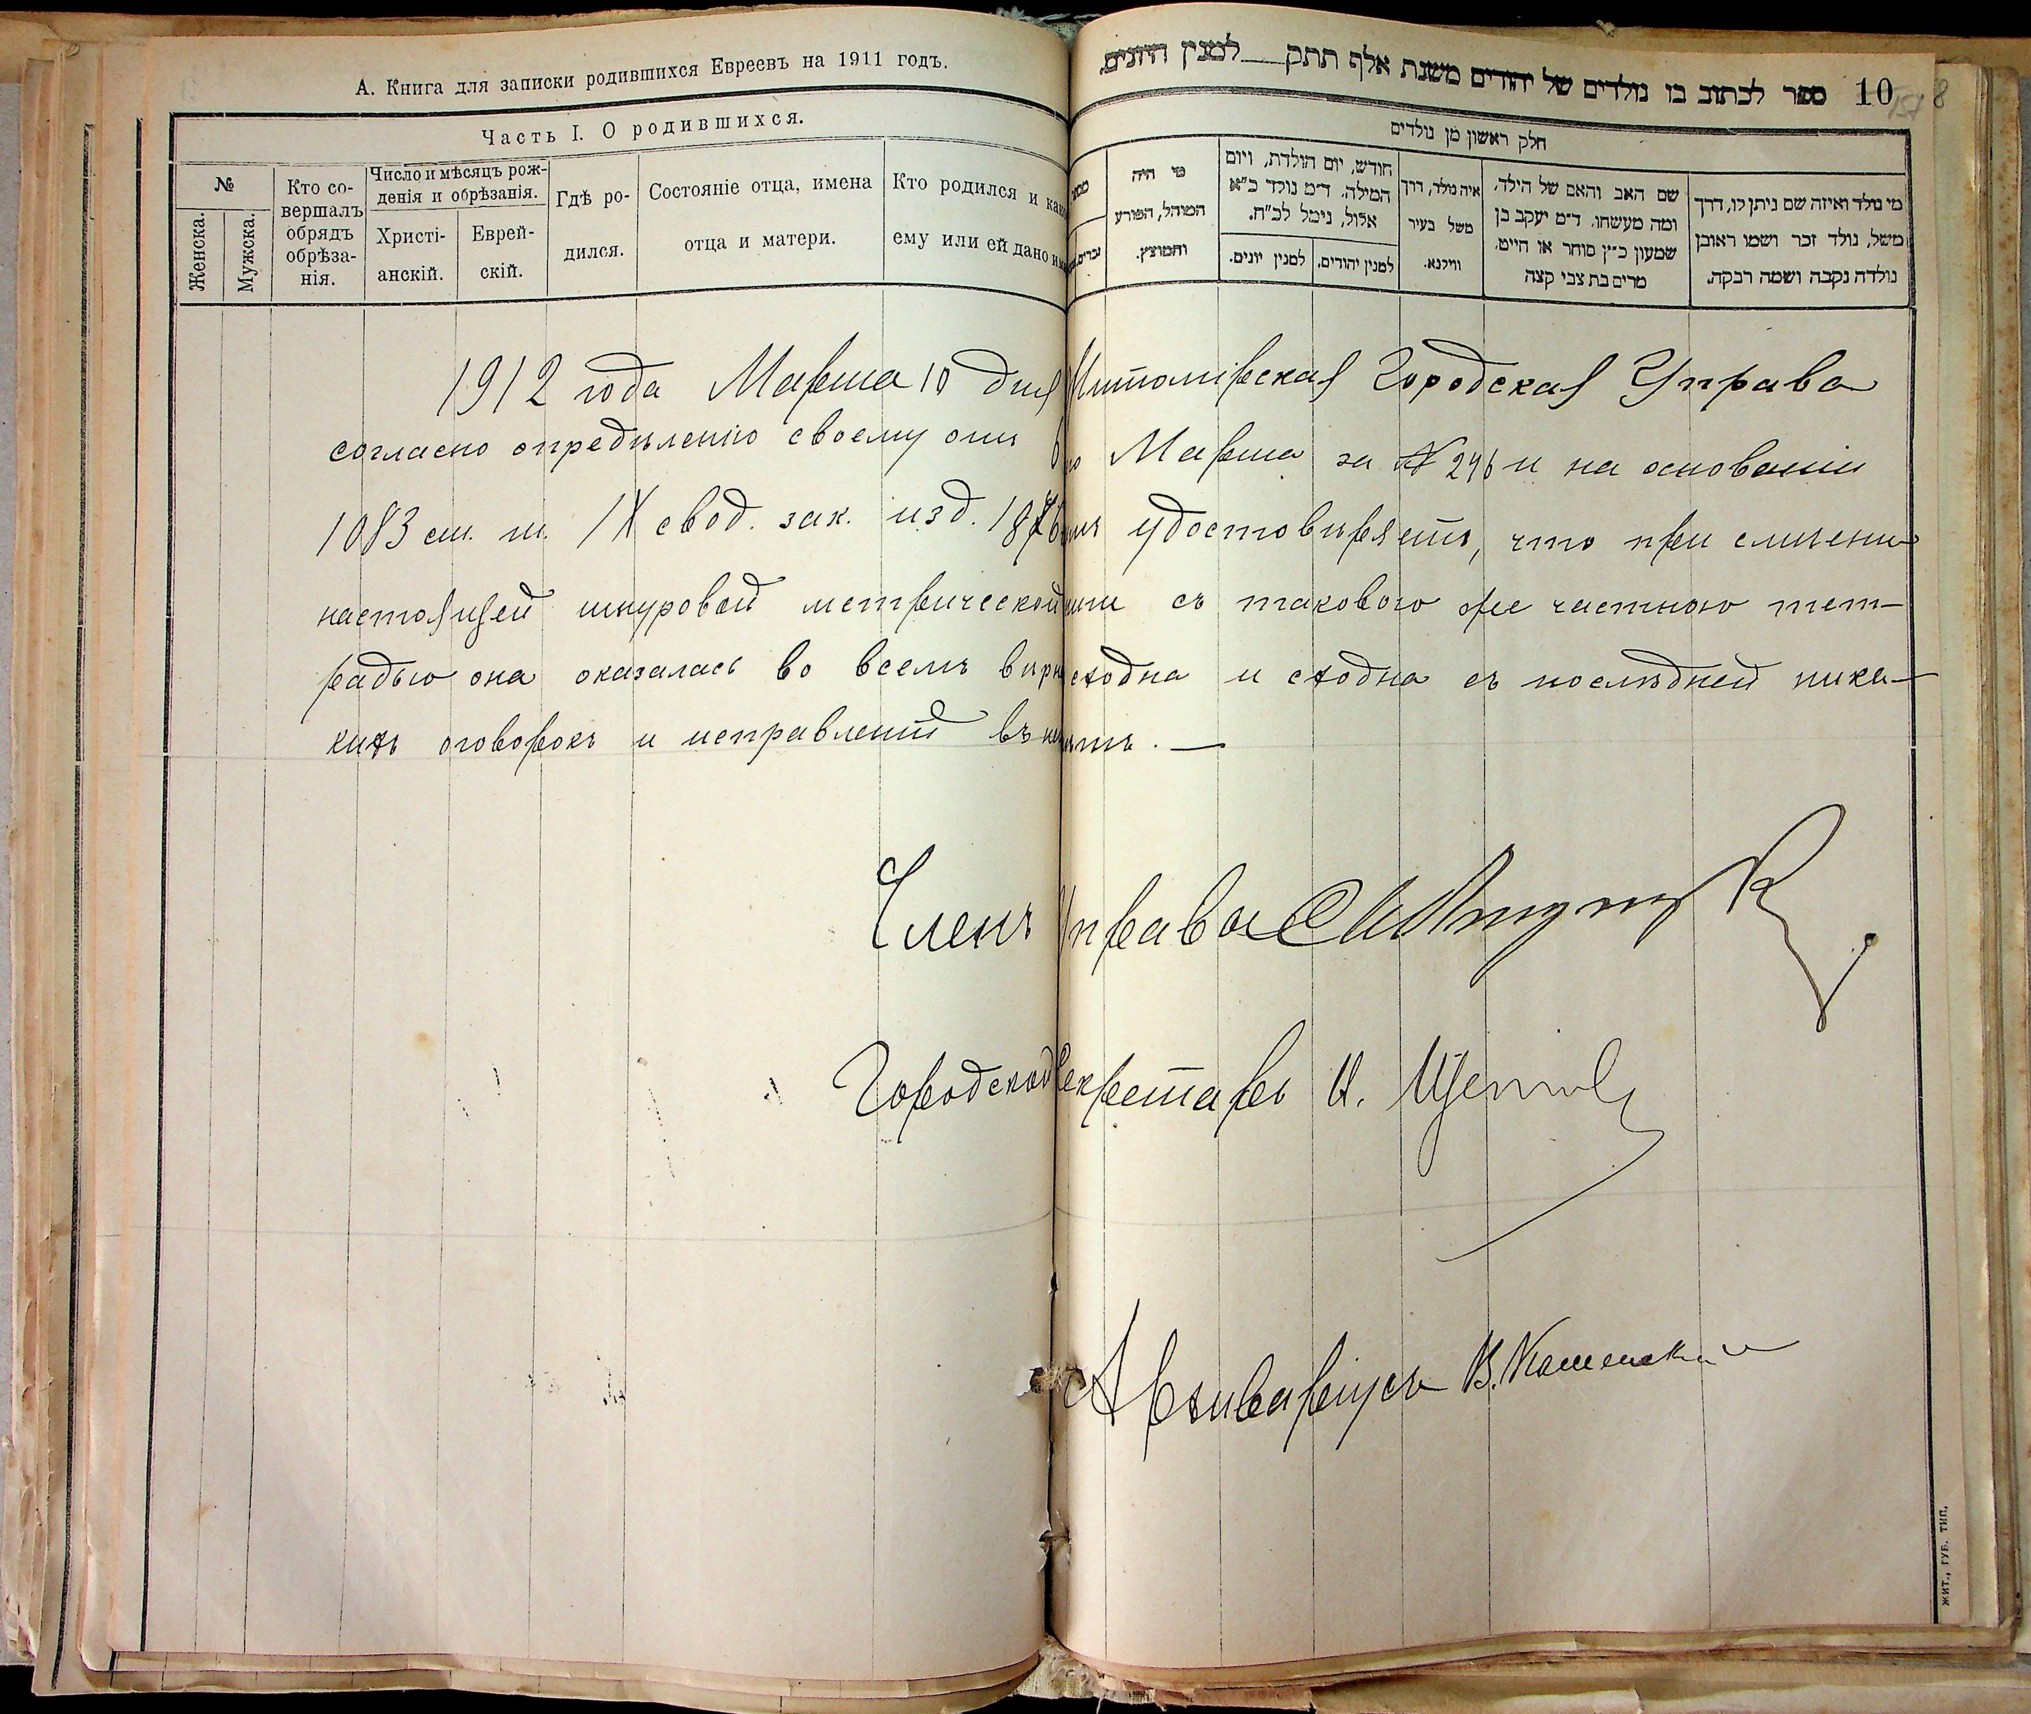 А. Книга для записки родившихся Евреевъ на 1911 годъ.
Часть I. О родившихся.
№
Женска.
Мужска.
Кто со-
вершалъ
обрядъ
обрѣза-
нія.
Число и мѣсяцъ рож-
денія и обрѣзанія.
Христі-
анскій.
Еврей-
скій.
Гдѣ ро-
дился.
Состояніе отца, имена
отца и матери.
Кто родился и како
ему или ей дано им
ספר לכתוב בו נולדים של יהודים משנת אלף תתק למנין היונים.
10
חלק ראשון מן נולדים
מי נולד ואיזה שם ניתן לו, דרך
משל, נולד זכר ושמו ראובן
נולדה נקבה ושמה רבקה.
שם האב והאם של הילד,
ומה מעשהו. ד״מ יעקב בן
שמעון כ״ץ סוחר או חייט.
מרים בת צבי קצה
איה נולד, דרך
משל בעיר
ווילנא.
חודש, יום הולדת, ויום
המילה. ד״מ נולד כ״א
אלול, נימל לכ״ח.
למנין יהודים.
למנין יונים.
מי היה
המוהל, הפורע
והמוצץ.
1912 года Марта 10 дня Житомірская Городская Управа
согласно опредѣленію своему отъ Марта за № 246 и на основаніи
1083 ст. т. IX свод. зак. изд. 1876 удостовѣряетъ, что при сличеніи
настоящей шнуровой метрической съ таковою же частною тет-
радью она оказалась во всемъ вѣрна сходна и сходна съ послѣдней ника-
кихъ оговорокъ и исправленій въ нетъ. —
Членъ Управы
Городской Секретарь И.
Архиваріусъ В. Каменский
ЖИТ., ГУБ. ТИП.